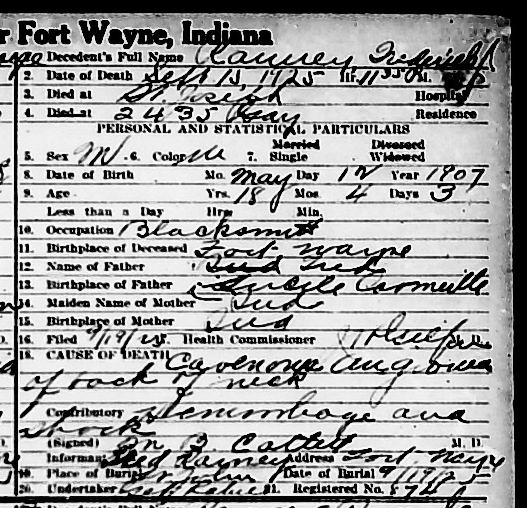 r Fort Wayne, Indiana
Decedent's Full Name Ranney
2. Date of Death Sept 15, 1925 Hr. 11 35 M. P
3. Died at St. Joseph Hospital
4. Died at 2435 Gay Residence
PERSONAL AND STATISTICAL PARTICULARS
5. Sex M 6. Color W 7. Single Married Widowed Divorced
8. Date of Birth Mo. May Day 12 Year 1907
9. Age Yrs. 18 Mos. 4 Days 3
Less than a Day Hrs. Min.
10. Occupation Blacksmith
11. Birthplace of Deceased Fort Wayne
12. Name of Father Fred
13. Birthplace of Father
14. Maiden Name of Mother
15. Birthplace of Mother Ind
16. Filed 9/19/25 Health Commissioner
18. CAUSE OF DEATH Cavernous Angioma
of back of neck
Contributory Hemorrhage and
shock
(Signed) M. D.
Informant Fred Ranney Address Fort Wayne
19. Place of Burial Date of Burial 9/19/25
20. Undertaker 21. Registered No.